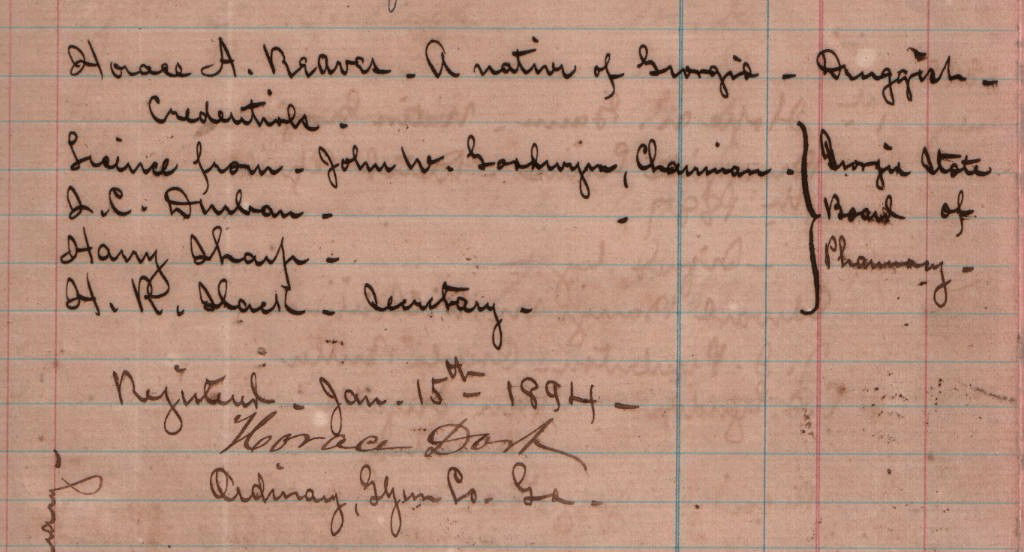 Horace A. Reaves - A native of Georgia - Druggist -
Credentials -
Lisince from - John W. Goodwyn, Chairman -
Georgia State
S.C. Durban -
Board of
Harry Sharp -
Pharmacy -
H. R. Slack - Secretary -
Registered - Jan. 15th - 1894 -
Horace Dart
Ordinary, Glynn Co. Ga -